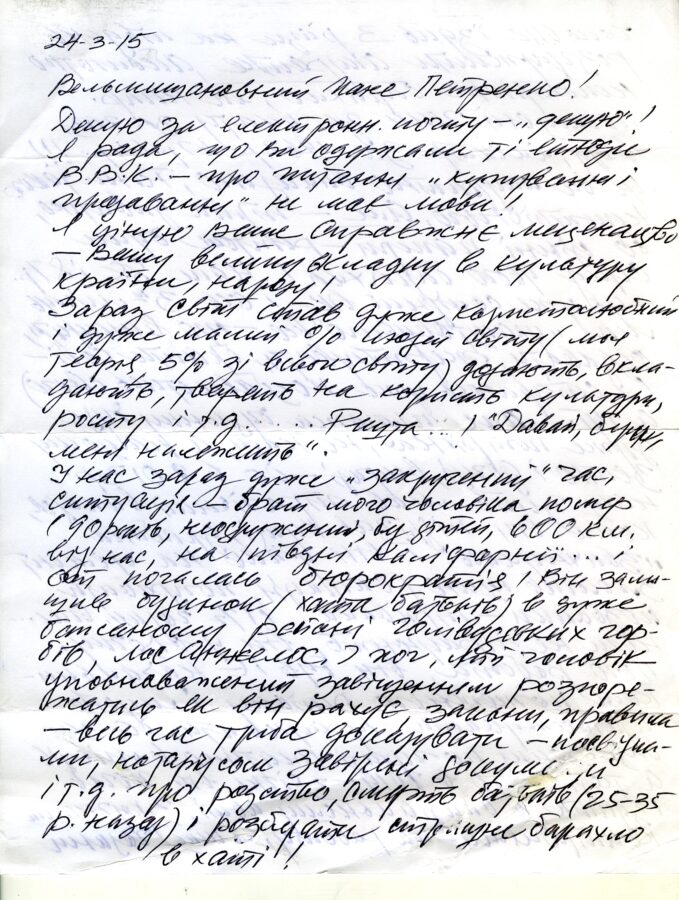 24-3-15
Вельмишановний Пане Петренко!
Дякую за електронн. пошту – "дякую"!
Я рада, що Ви одержали ті етюди
В.В.К. – про питання "купування і
продавання" не має мови!
Я ціную Ваше справжнє меценатство
– Вашу велику вкладну в культуру
країни, народу!
Зараз світ став дуже користолюбний
і дуже малий % людей світу (моя
теорія, 5% зі всього світу) додають, вкла-
дають, творять на користь культури,
росту і т.д. ..... Решта... ! "Давай, беру,
мені належить".
У нас зараз дуже "закручений" час,
ситуація – брат мого чоловіка помер
неодружений, без дітей, 600 км.
від нас, на півдні Каліфорнії... і
от почалась бюрократія! Він зали-
шив будинок (хата батьків) в дуже
бажаному районі голівудських гор-
бів, Лос Анжелос. І хоч мій чоловік
уповноважений завіщенням розпоря-
жатись як він рахує, закони, правила
– весь час треба доказувати – посвідка-
ми, нотарусом завірені докуме.
і т.д. про родство, смерть батьків (25-35
р. назад) і розбирати страшне барахло
в хаті!